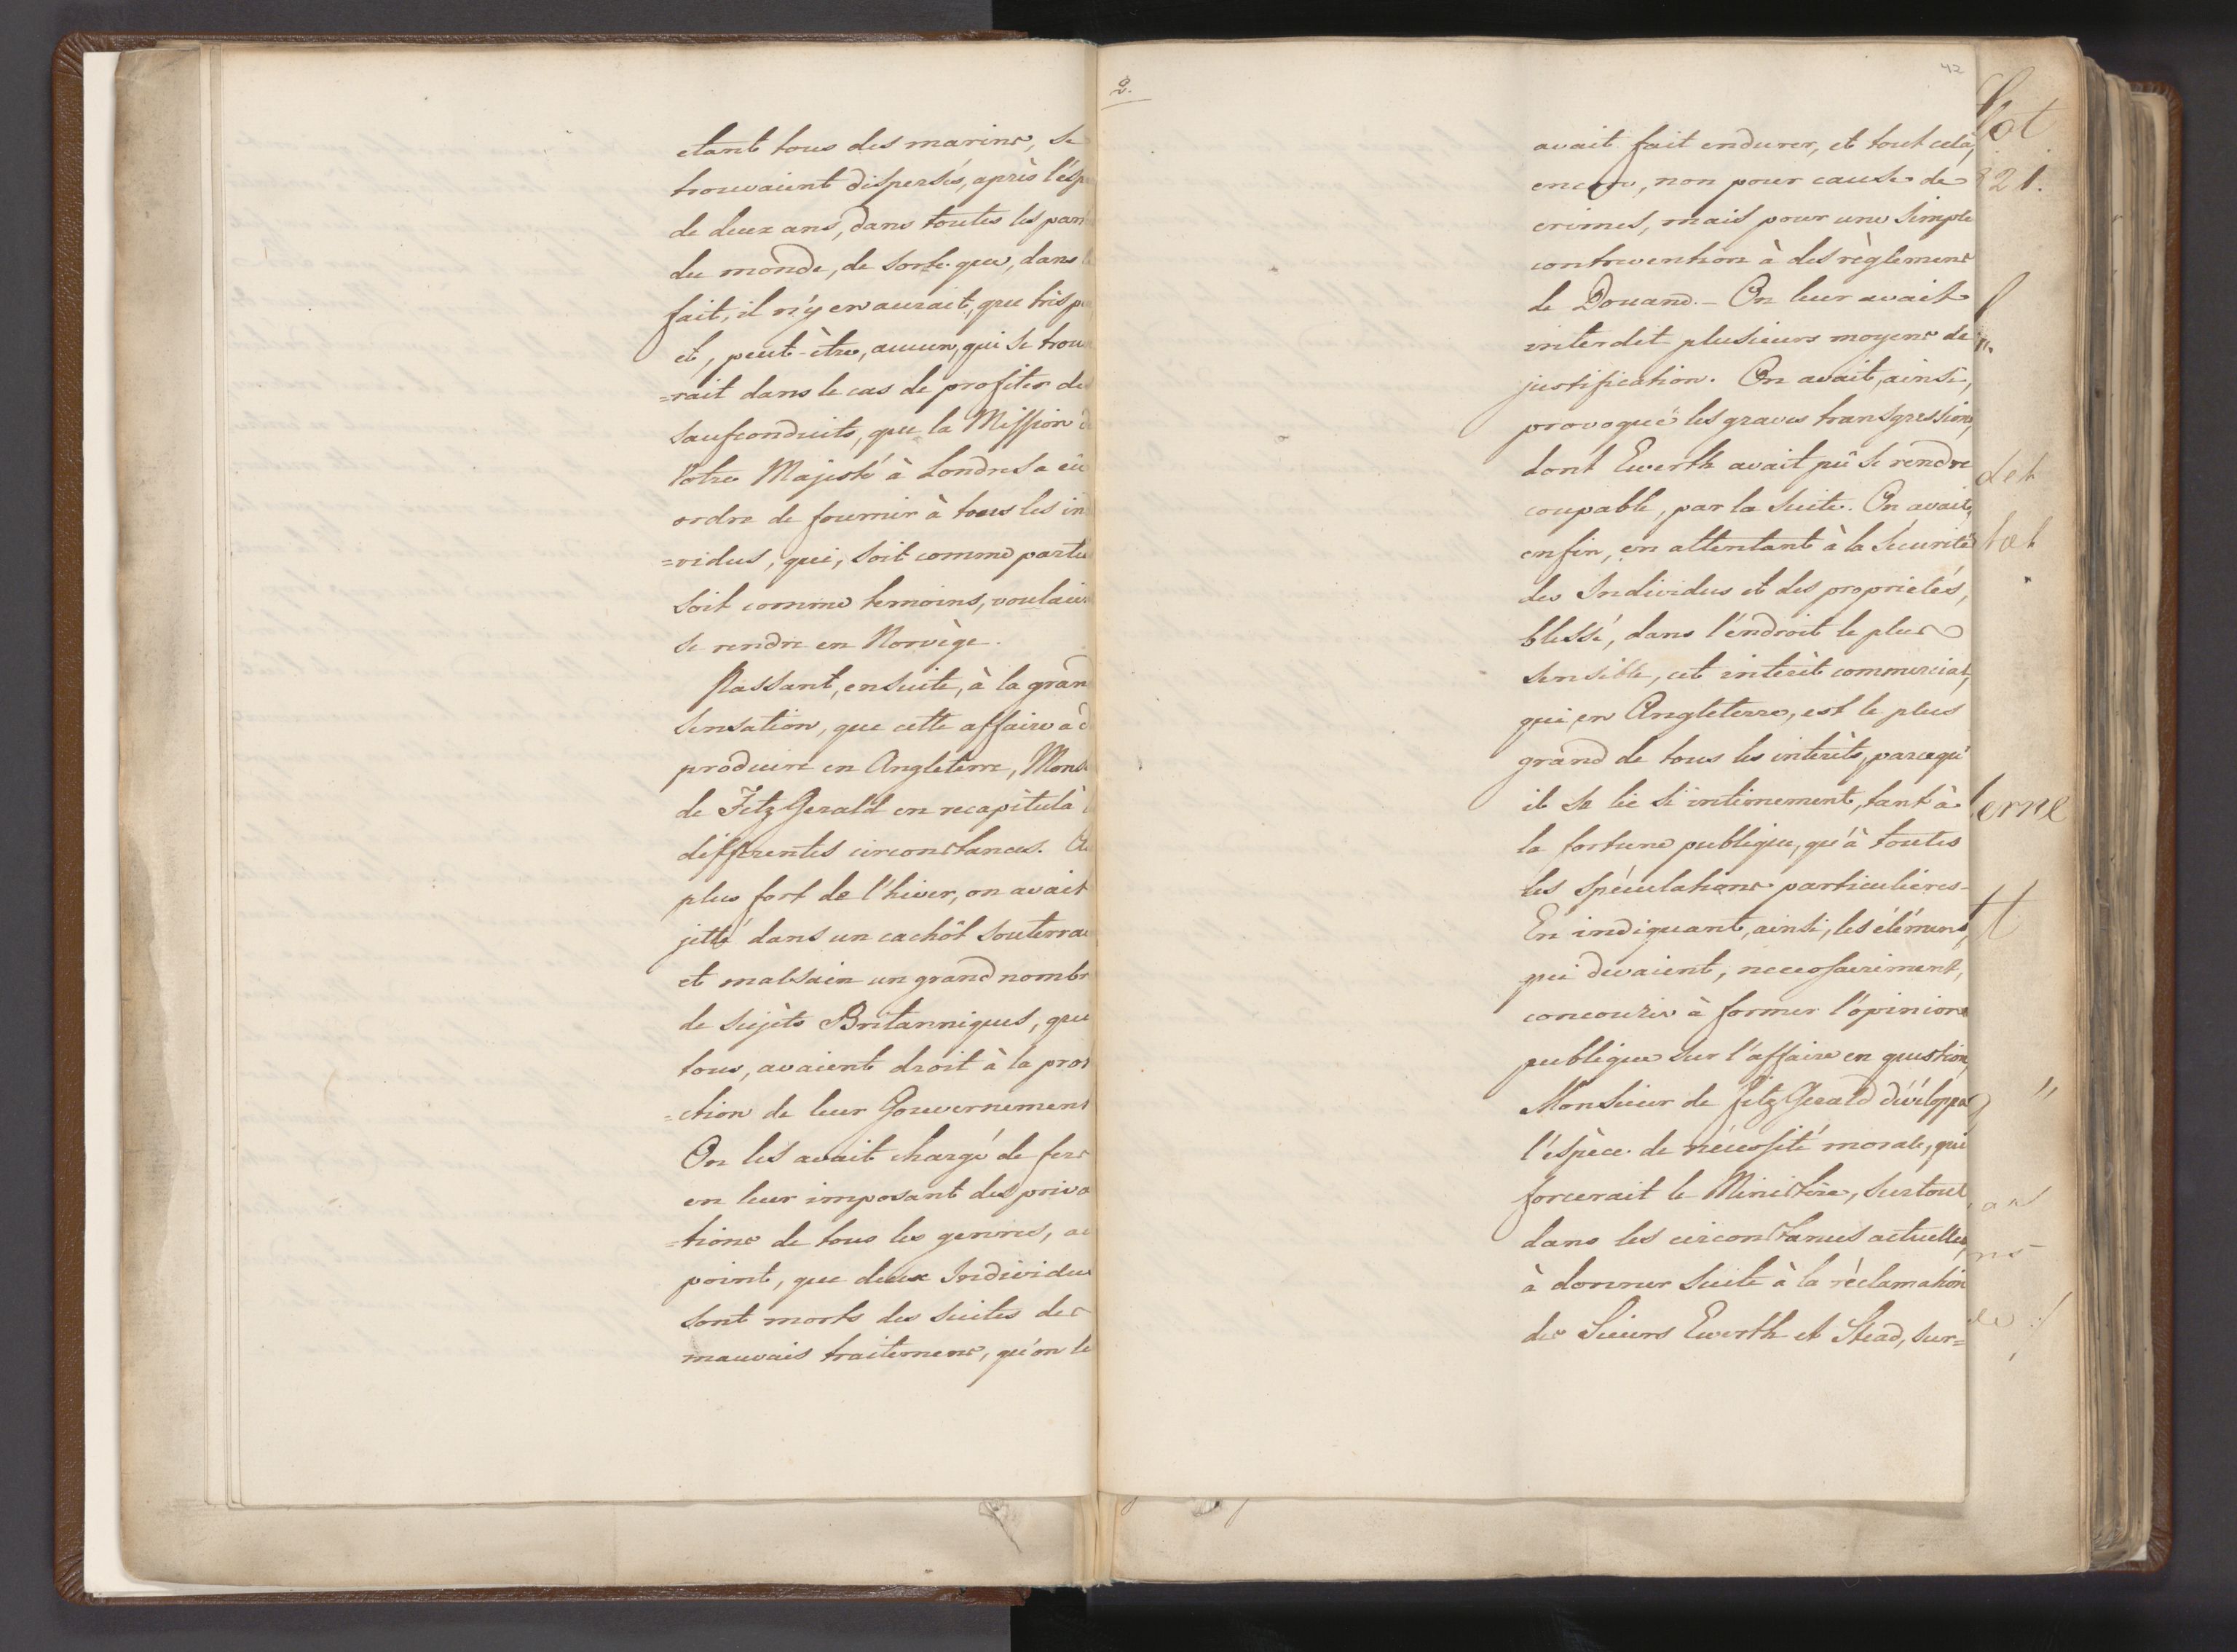 etant tous des marins, se
trouvaient dispersés, après l'esp
de deux ans, dans toutes les par
du monde, de sorte que, dans le
fait, il n'y en aurait, que très p
et, peut-être, aucun, qui se trou
=rait dans le cas de profiter de
saufconduits, que la Mission d
Votre Majesté à Londres a eû
ordre de fournir à tous les in
=vidus, qui, soit comme partu
soit comme temoins, voulaien
se rendre en Norvège.
Passant, ensuite, à la gran
sensation, que cette affaire a d
produire en Angleterre, Mons
de FitzGerald en recapitulà
differentes circonstances. Au
plus fort de l'hiver, on avait
jetté dans un cachôt souterrai
et malsain un grand nombr
de sujèts Britanniques, que
tous, avaient droit à la prot
=ction de leur Gouvernement
On les avait chargé de fers
en leur imposant des priva
=tions de tous les genres, au
point, que deux Individus
sont morts des suites des
mauvais traitemens, qu'on le
2.
42
avait fait endurer, et tout celà,
encore, non pour cause de
crimes, mais pour une simple
contravention à des règlemens
de Douane. - On leur avait
interdit plusieurs moyens de
justification. On avait, ainsi,
provoqué les graves transgressions,
dont Ewerth avait pû se rendre
coupable, par la suite. On avait,
enfin, en attentant à la sécurité
des Individus et des proprietés,
blessé, dans l'endroit le plus
sensible, cet intérêt commercial,
qui, en Angleterre, est le plus
grand de tous les intérêts, parcequ'
il se lie si intimement, tant à
la fortune publique, qu'à toutes
les spéculations particulières -
En indiquant, ainsi, les élémens,
qui devaient, necessairement,
concourir à former l'opinion
publique sur l'affaire en question,
Monsieur de FitzGerald développa
l'éspèce de nécessité morale, qui
forcerait le Ministère, surtout
dans les circonstances actuelles,
à donner suite à la réclamation
des Sieurs Ewerth et Stead, sur=
21.
det
tt